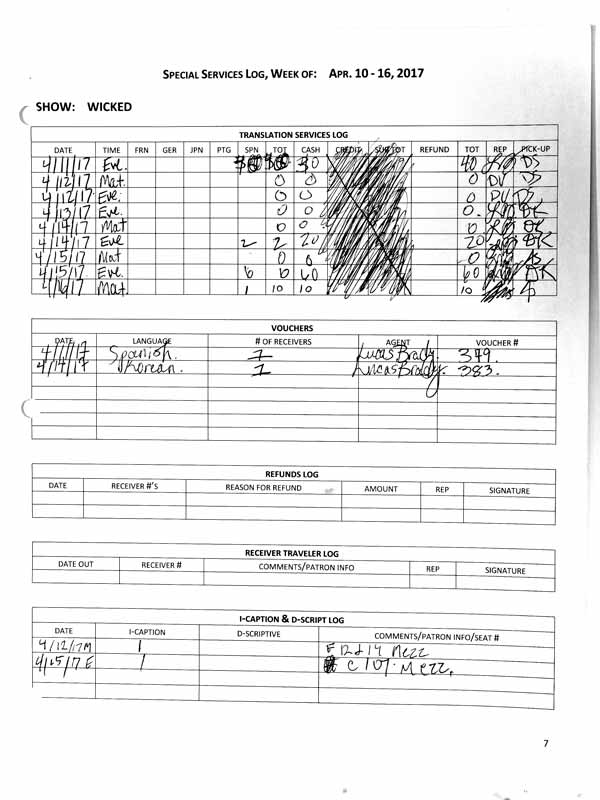 SPECIAL SERVICES LOG, WEEK OF: APR. 10 - 16, 2017
SHOW: WICKED
TRANSLATION SERVICES LOG
DATE TIME FRN GER JPN PTG SPN TOT CASH CREDIT SUB TOT REFUND TOT REP PICK-UP
4/11/17 Eve. 30 40 DS
4/12/17 Mat. 0 0 0 DV DS
4/12/17 Eve. 0 0 0 DV DS
4/13/17 Eve. 0 0 0. DK
4/14/17 Mat 0 0 0
4/14/17 Eve 2 2 20 20 DK
4/15/17 Mat 0 0 0
4/15/17 Eve. 6 6 60 60 DK
4/16/17 Mat. 1 10 10 10
VOUCHERS
DATE LANGUAGE # OF RECEIVERS AGENT VOUCHER #
4/11/17 Spanish. 1 Lucas Brady. 379.
4/14/17 Korean. 1 Lucas Brady. 383.
REFUNDS LOG
DATE RECEIVER #'S REASON FOR REFUND AMOUNT REP SIGNATURE
RECEIVER TRAVELER LOG
DATE OUT RECEIVER # COMMENTS/PATRON INFO REP SIGNATURE
I-CAPTION & D-SCRIPT LOG
DATE I-CAPTION D-SCRIPTIVE COMMENTS/PATRON INFO/SEAT #
4/12/17 M 1 F 12 & 14 Mezz
4/15/17 E 1 C 107. Mezz.
7